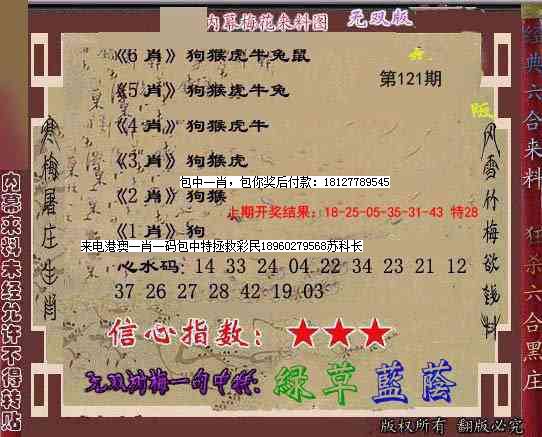 内幕梅花来料图 无双版
《6 肖》狗猴虎牛兔鼠
第121期
《5 肖》狗猴虎牛兔
《4 肖》狗猴虎牛
《3 肖》狗猴虎
包中一肖，包你奖后付款：18127789545
《2 肖》狗猴
上期开奖结果：18-25-05-35-31-43 特28
《1 肖》狗
来电港澳一肖一码包中特拯救彩民18960279568苏科长
心水码：14 33 24 04 22 34 23 21 12
37 26 27 28 42 19 03
信心指数：★★★
无双鸿梅一句中特：綠草藍蔭
版权所有 翻版必究
寒梅屠庄生肖
风雪竹梅欲钱料
内幕来料未经允许不得转贴
经典六合来料
狂杀六合黑庄